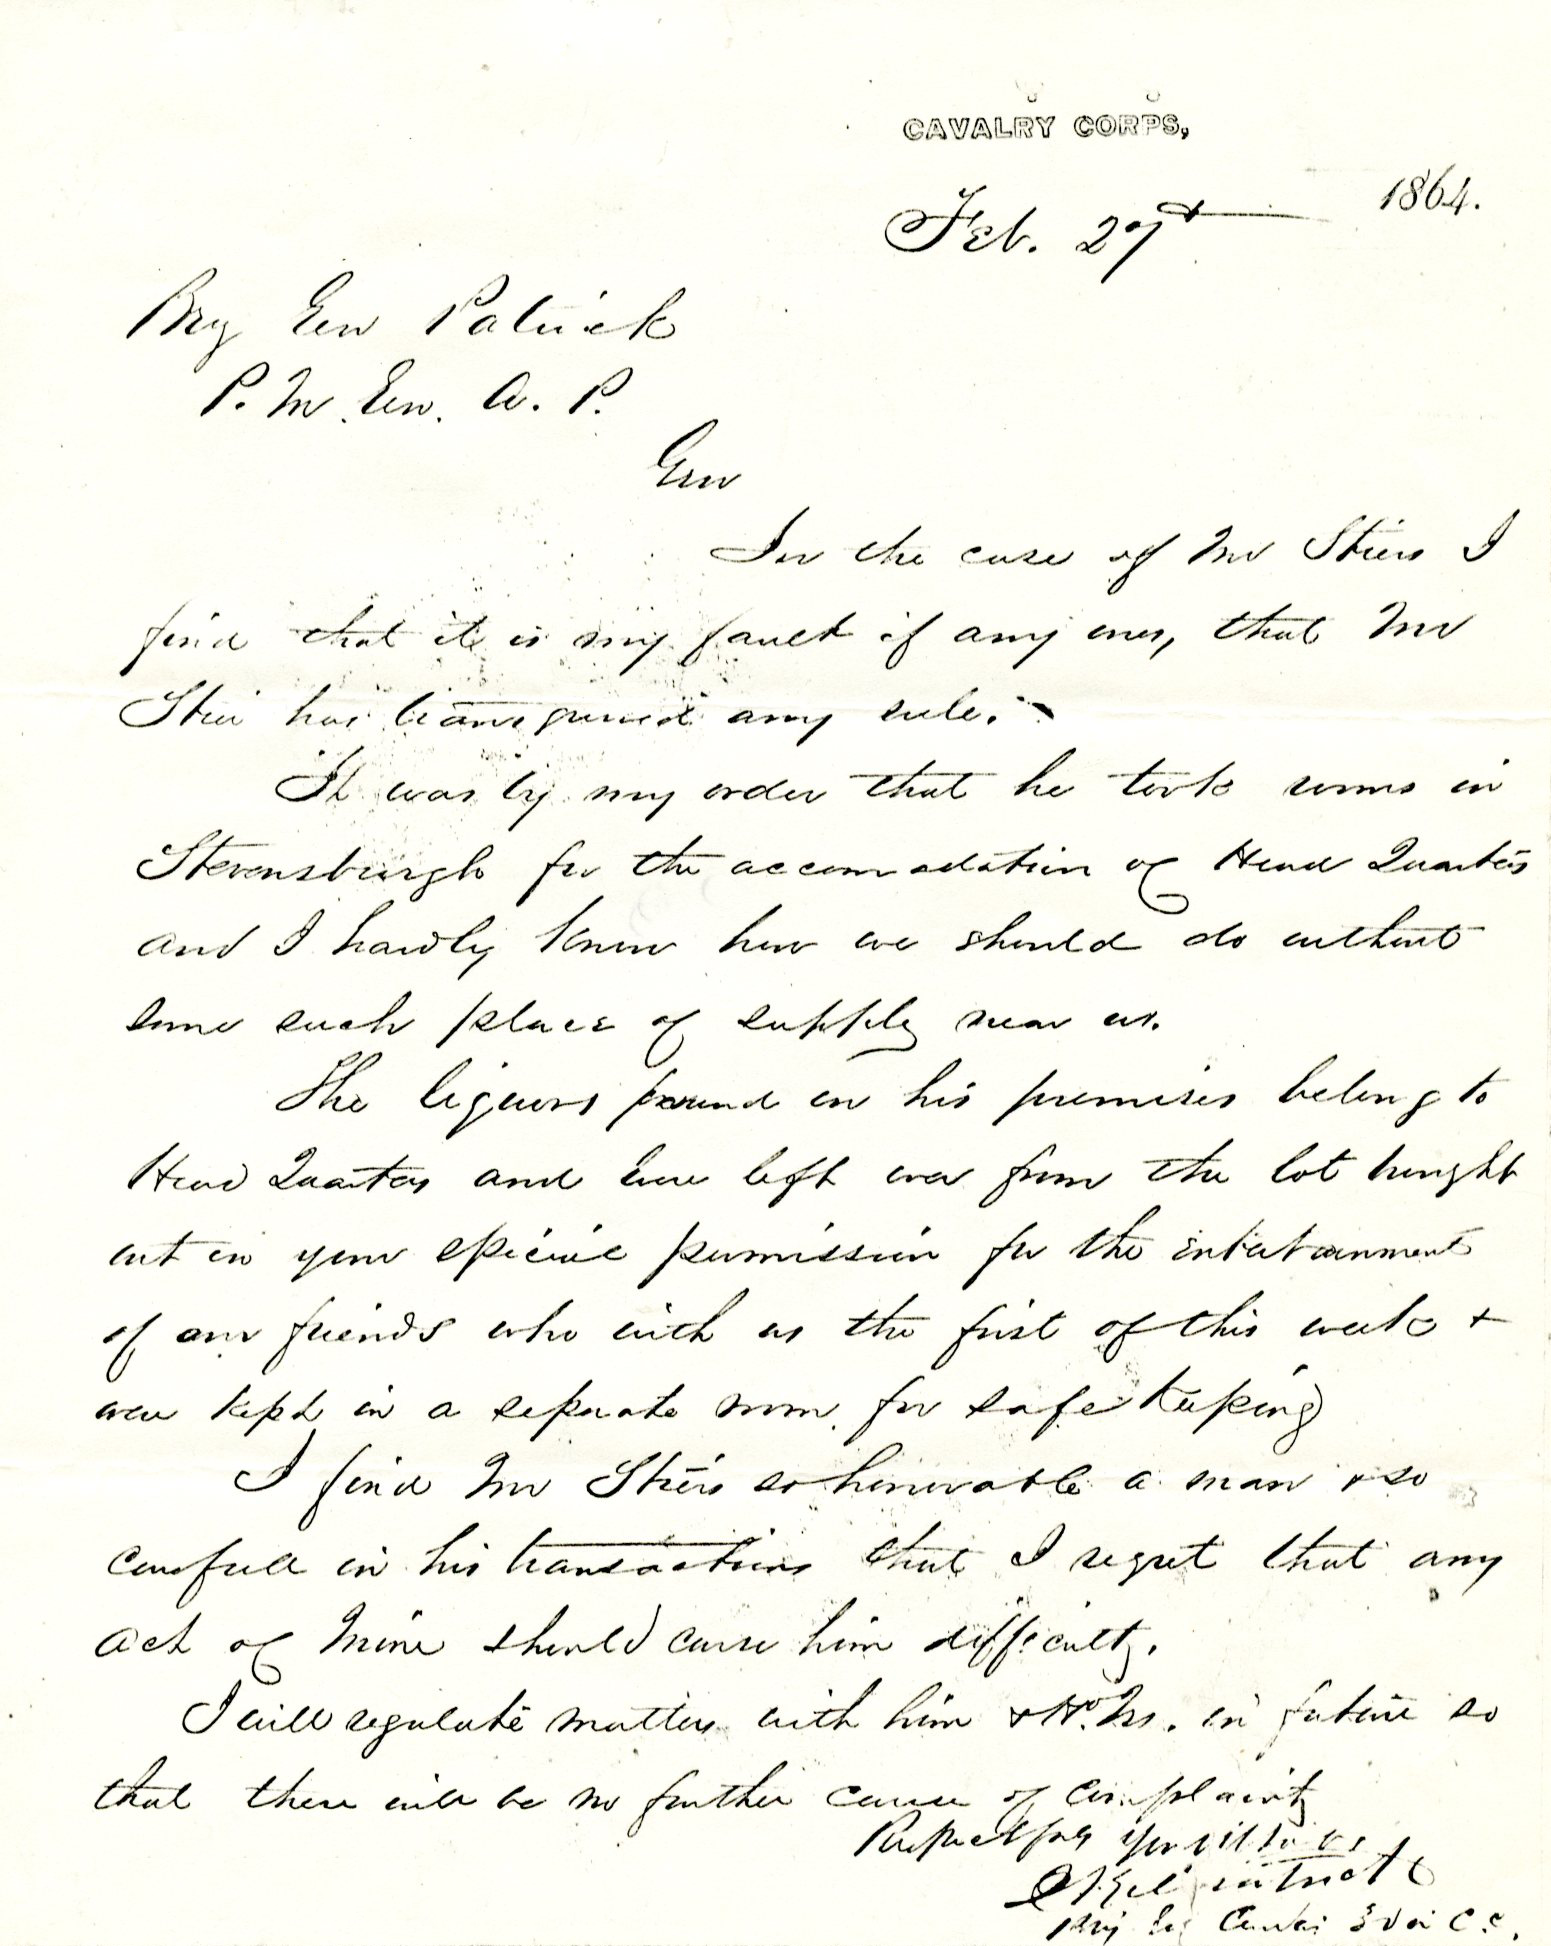 CAVALRY CORPS,
Feb. 27th 1864.
Brig Gen Patrick
P. M. Gen. A. P.
Gen
In the case of Mr Stiers I
find that it is my fault if any ones, that Mr
Stier has transgressed any rule.
It was by my order that he took rooms in
Stevensburgh for the accomodation of Head Quarters
and I hardly know how we should do without
some such place of supply near us.
The liquors found on his premises belong to
Head Quarters and were left over from the lot bought
out on your special permission for the entertainment
of our friends who with us the first of this week +
were kept in a separate room for safe keeping
I find Mr Stiers so honorable a man + so
carefull in his transactions that I regret that any
act of mine should cause him difficulty.
I will regulate matters with him + in future so
that there will be no further cause of complaint
Respectfully your obt
Kilpatrick
Brig Comdg 3 Div C. C.